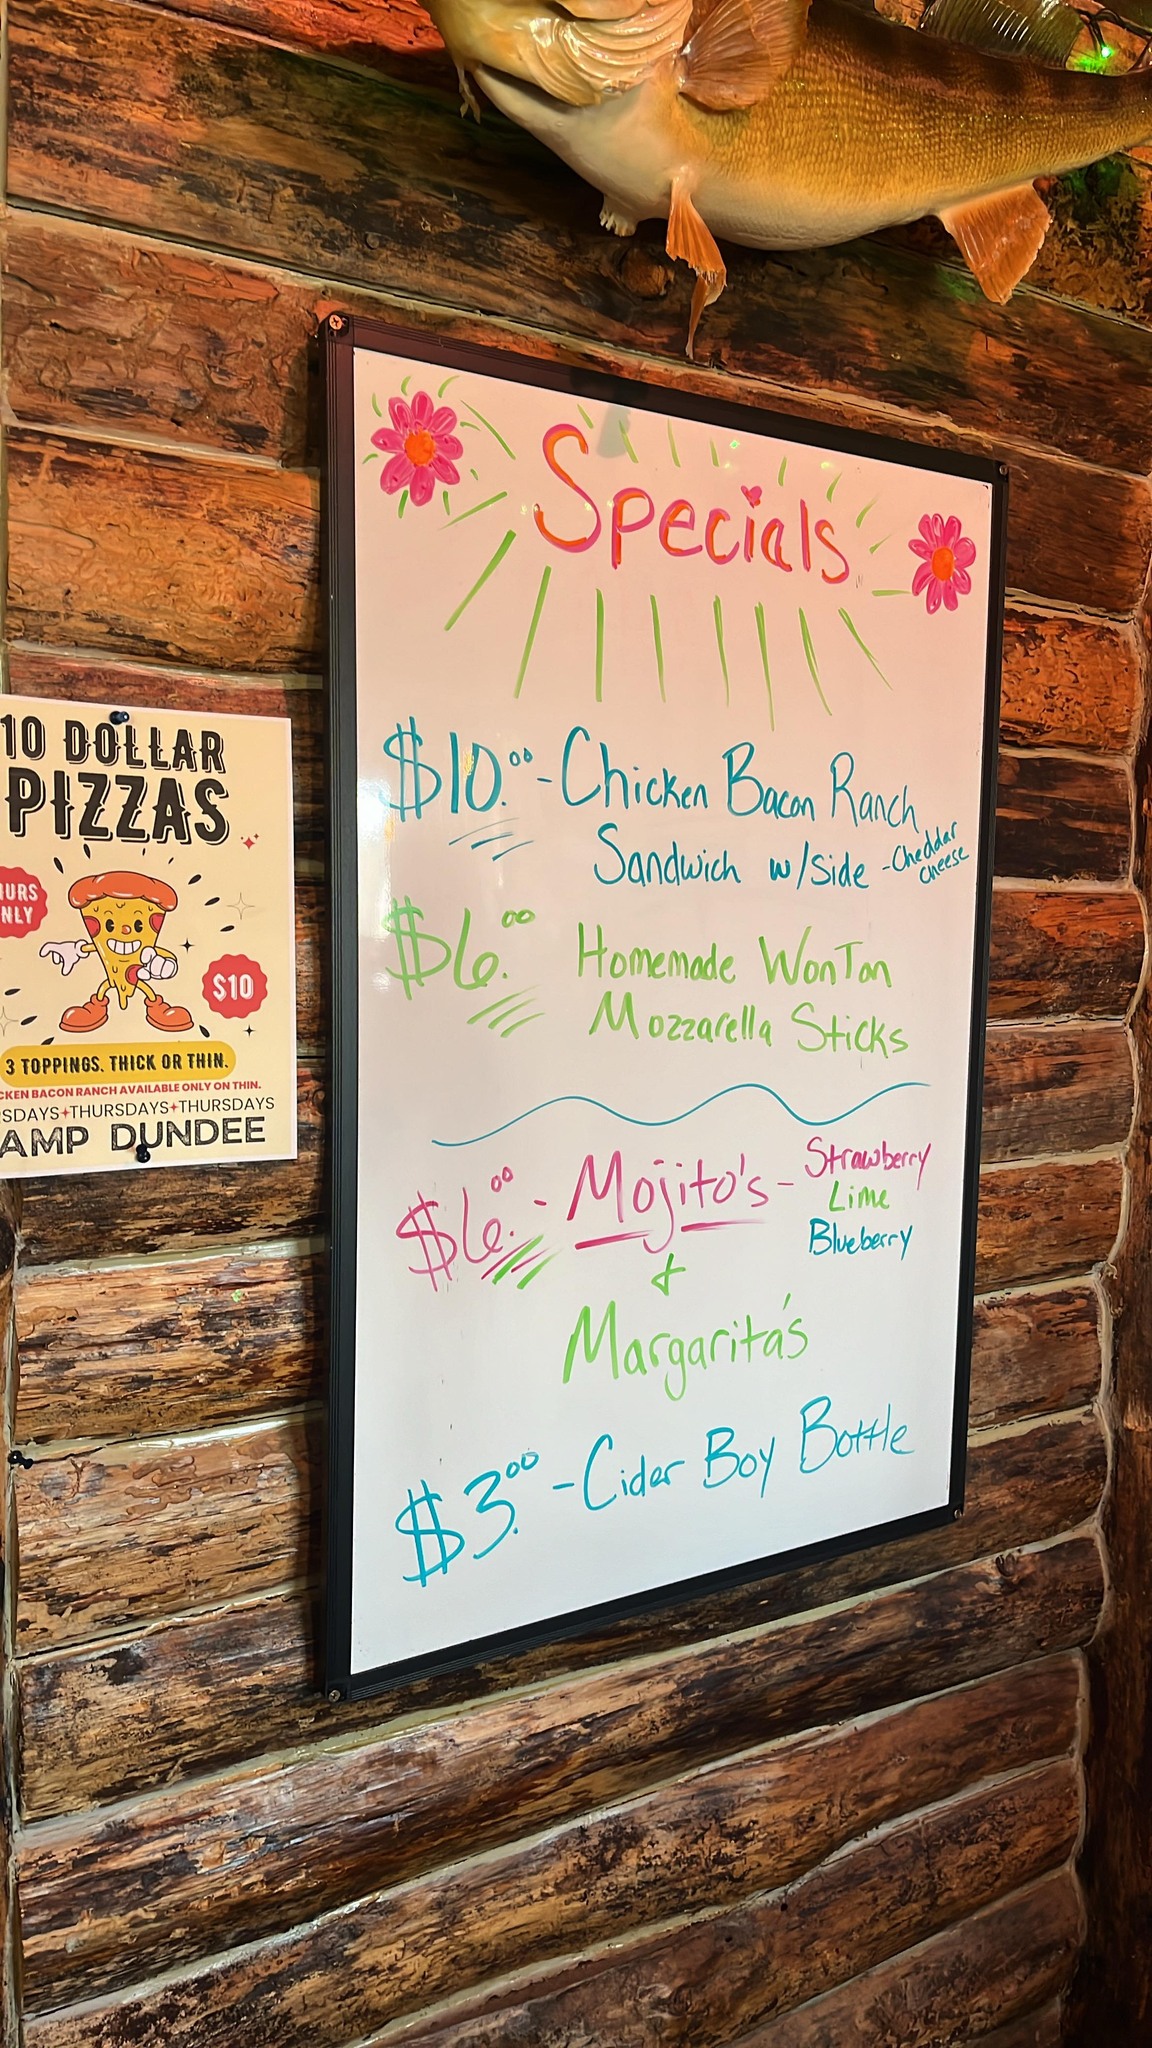 Specials
$10.00 - Chicken Bacon Ranch
Sandwich w/side - Cheddar
Cheese
$6.00 Homemade WonTon
Mozzarella Sticks
$6.00 - Mojito's - Strawberry
Lime
Blueberry
&
Margarita's
$3.00 - Cider Boy Bottle
10 DOLLAR
PIZZAS
HURS
NLY
$10
3 TOPPINGS. THICK OR THIN.
CKEN BACON RANCH AVAILABLE ONLY ON THIN.
RSDAYS+THURSDAYS+THURSDAYS
AMP DUNDEE